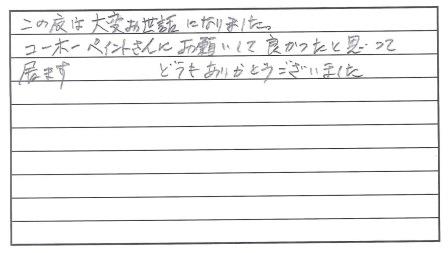 この度は大変お世話になりました。
コーホーペイントさんにお願いして良かったと思って
居ます　　　どうもありがとうございました